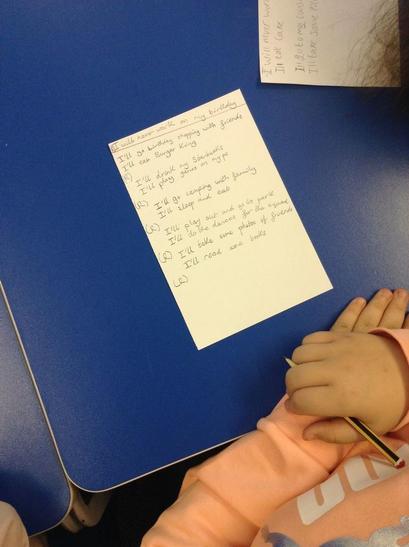 I will never work on my birthday
I'll go birthday shopping with friends
I'll eat Burger King
(R)
I'll drink my Starbucks
I'll play games on my
(R)
I'll go camping with family
I'll sleep and eat
(R)
I'll play out and go to park
I'll do the dances for the
(R)
I'll take some photos of friends
I'll read some books
(R)
I will never wor
I'll eat cake
I'll go to my
I'll take some